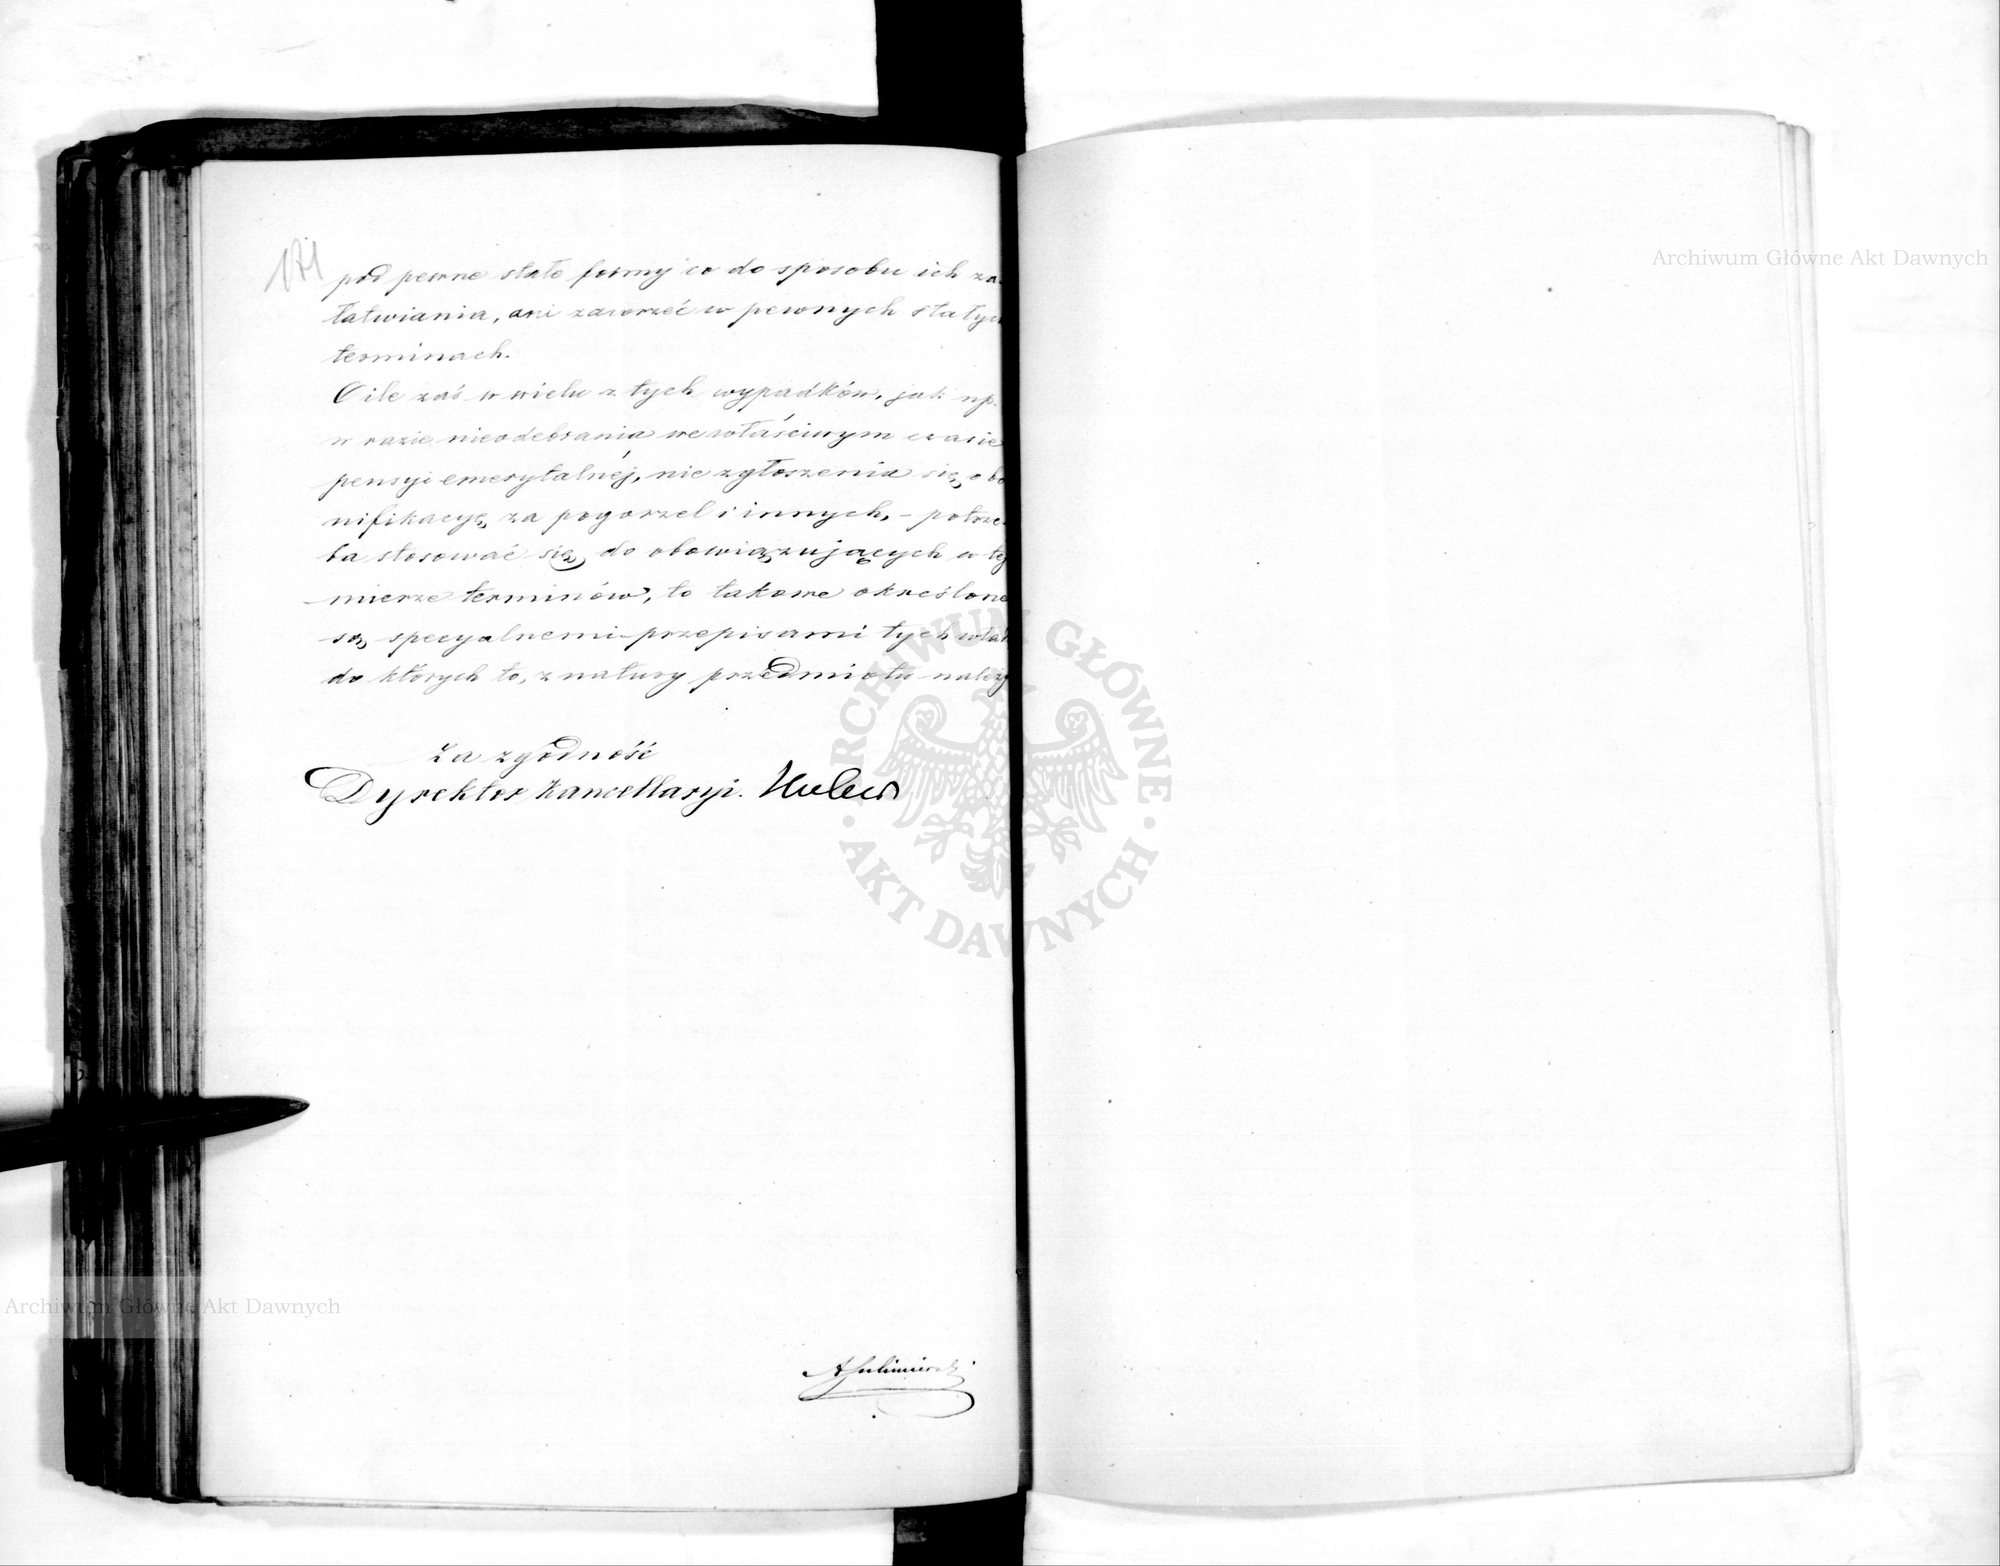 171
pod pewne stałe formy co do sposobu ich za-
łatwiania, ani zawrzeć w pewnych stałych
terminach.
O ile zaś w wielu z tych wypadków, jak np.
w razie nieodebrania we właściwym czasie
pensyi emerytalnéj, nie zgłoszenia się o bo
nifikacyę za pogorzel i innych, – potrze-
ba stosować się do obowiązujących w tej
mierze terminów, to takowe określone
są specyalnemi przepisami tych wład
do których to, z natury przedmiotu należy
Za zgodność
Dyrektor Kancellaryi. Huber
ASulimierski
ARCHIWUM GŁÓWNE
· AKT DAWNYCH ·
Archiwum Główne Akt Dawnych
Archiwum Główne Akt Dawnych